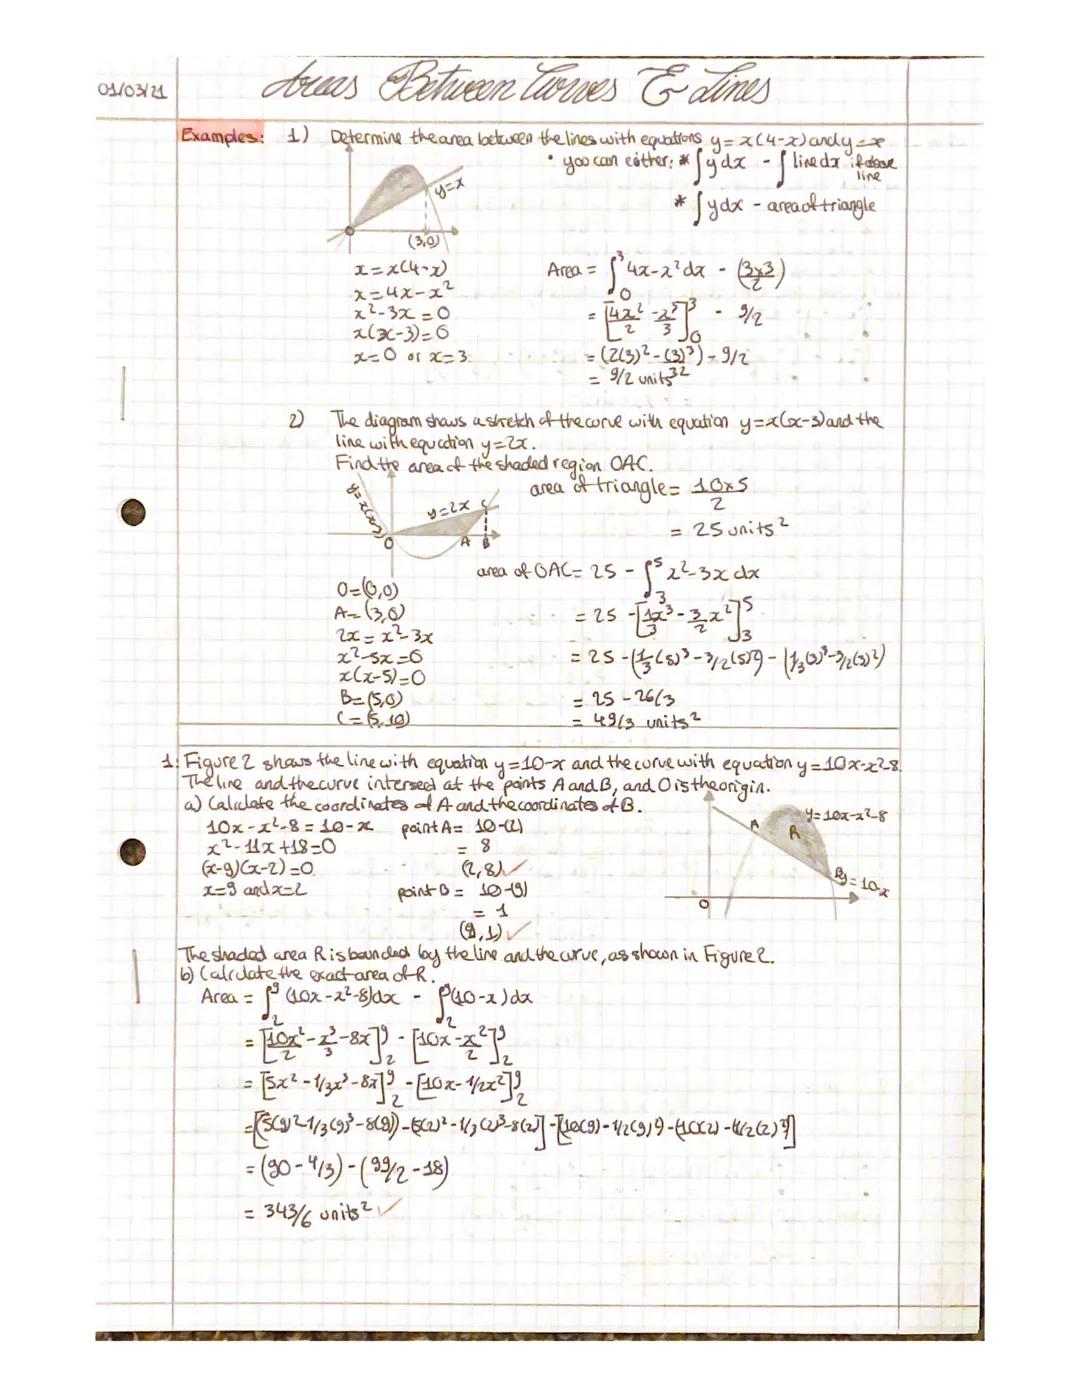 01/03/21
Areas Between Curves & Lines
Examples: 1) Determine the area between the lines with equations y = x(4-x) and y = x
• you can either: * ∫y dx - ∫line dx if above line
* ∫y dx - area of triangle
y=x
(3,0)
x = x(4-x)
x = 4x - x²
x² - 3x = 0
x(x-3) = 0
x = 0 or x = 3
Area = ∫₀³ 4x - x² dx - (3x3/2)
= [4x²/2 - x³/3]₀³ - 9/2
= (2(3)² - (3)³/3) - 9/2
= 9/2 units²
2) The diagram shows a sketch of the curve with equation y = x(x-3) and the
line with equation y = 2x.
Find the area of the shaded region OAC.
y=x(x-3)
y=2x
C
O
A
B
area of triangle = 10x5/2
= 25 units²
area of OAC = 25 - ∫₃⁵ x² - 3x dx
= 25 - [1/3x³ - 3/2x²]₃⁵
= 25 - (1/3(5)³ - 3/2(5)²) - (1/3(3)³ - 3/2(3)²)
= 25 - 26/3
= 49/3 units²
O = (0,0)
A = (3,0)
2x = x² - 3x
x² - 5x = 0
x(x-5) = 0
B = (5,0)
C = (5,10)
1. Figure 2 shows the line with equation y = 10-x and the curve with equation y = 10x-x²-8.
The line and the curve intersect at the points A and B, and O is the origin.
a) Calculate the coordinates of A and the coordinates of B.
10x - x² - 8 = 10 - x
x² - 11x + 18 = 0
(x-9)(x-2) = 0
x = 9 and x = 2
point A = 10-(2)
= 8
(2,8) ✓
point B = 10-(9)
= 1
(9,1) ✓
y=10x-x²-8
A
R
B
y=10-x
O
The shaded area R is bounded by the line and the curve, as shown in Figure 2.
b) Calculate the exact area of R.
Area = ∫₂⁹ (10x - x² - 8) dx - ∫₂⁹ (10-x) dx
= [10x²/2 - x³/3 - 8x]₂⁹ - [10x - x²/2]₂⁹
= [5x² - 1/3x³ - 8x]₂⁹ - [10x - 1/2x²]₂⁹
= [(5(9)² - 1/3(9)³ - 8(9)) - (5(2)² - 1/3(2)³ - 8(2)] - [(10(9) - 1/2(9)²) - (10(2) - (1/2(2)²)]
= (90 - 4/3) - (99/2 - 18)
= 343/6 units² ✓